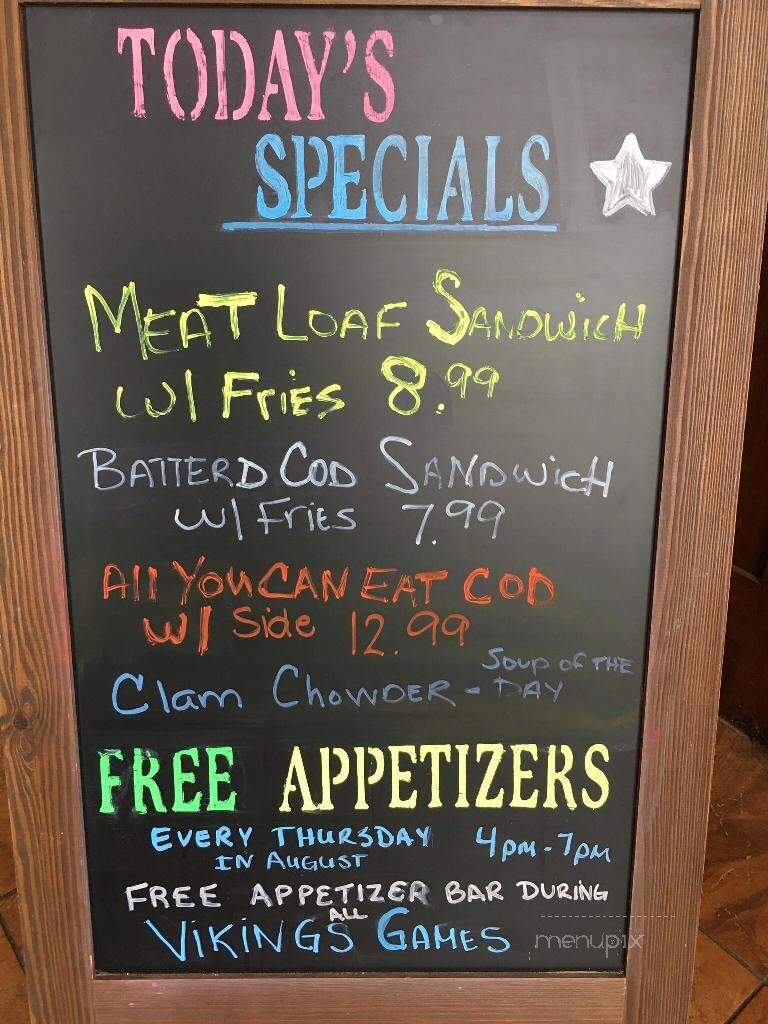 TODAY'S
SPECIALS
MEAT LOAF SANDWICH
W/ FriES 8.99
BATTERD COD SANDWICH
W/ Fries 7.99
All YOU CAN EAT COD
W/ Side 12.99
Clam CHOWDER - SOUP OF THE DAY
FREE APPETIZERS
EVERY THURSDAY 4PM-7PM
IN AUGUST
FREE APPETIZER BAR DURING
ALL
VIKINGS GAMES
menupix